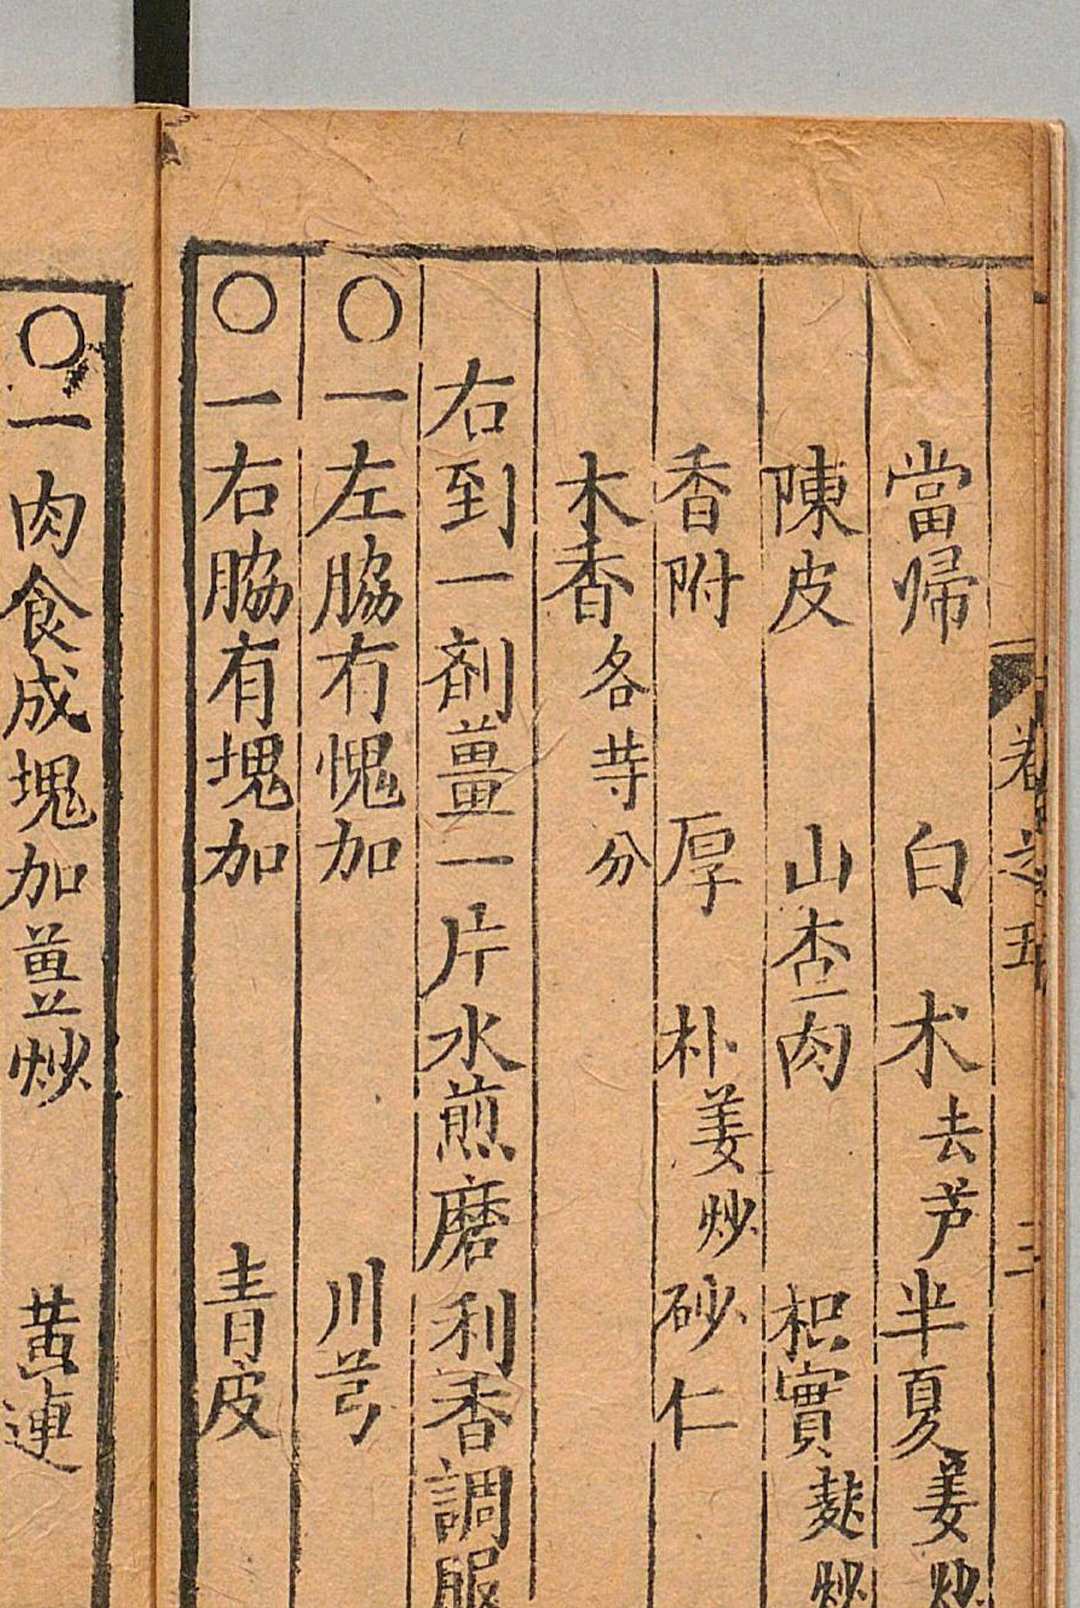 卷之五 二
當歸 白术去芦 半夏姜炒
陳皮 山查肉 枳實麸炒
香附 厚朴姜炒 砂仁
木香各䓁分
右剉一劑薑一片水煎磨利香調服
〇一左脇有愧加 川芎
〇一右脇有塊加 青皮
〇一肉食成塊加薑炒 黃連